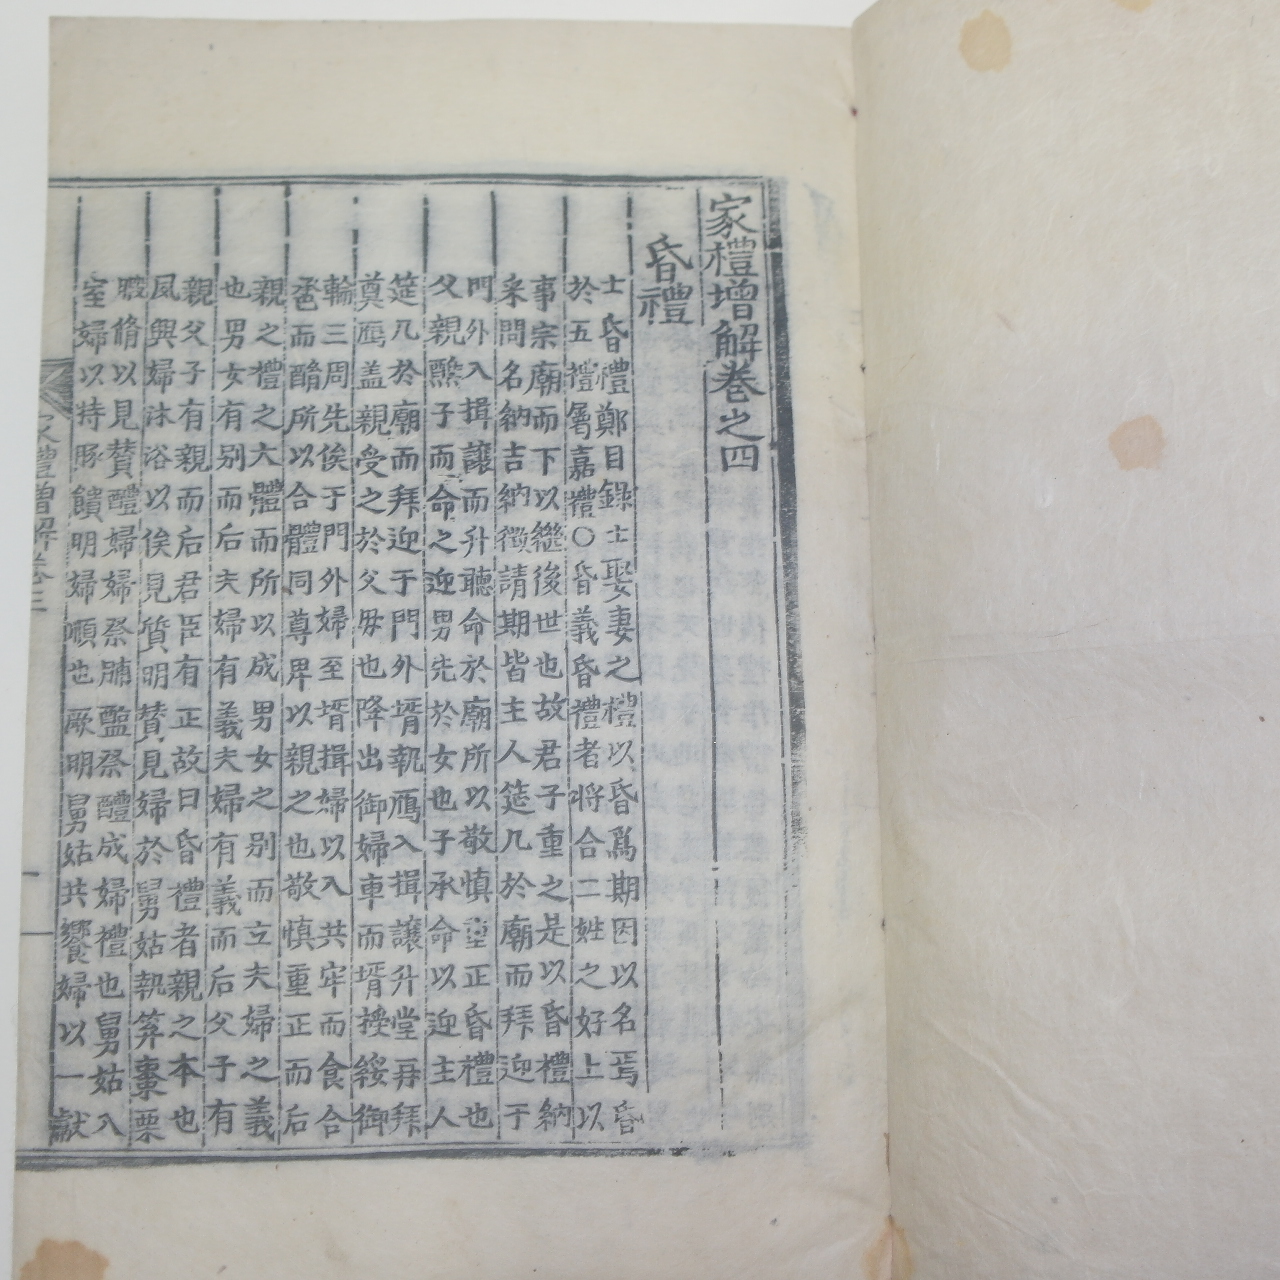 家禮增解卷之四
昏禮
士昏禮鄭目錄士娶妻之禮以昏爲期因以名焉昏
於五禮屬嘉禮○昏義昏禮者將合二姓之好上以
事宗廟而下以繼後世也故君子重之是以昏禮納
采問名納吉納徵請期皆主人筵几於廟而拜迎于
門外入揖讓而升聽命於廟所以敬愼重正昏禮也
父親醮子而命之迎男先於女也子承命以迎主人
筵几於廟而拜迎于門外壻執鴈入揖讓升堂再拜
奠鴈盖親受之於父母也降出御婦車而壻授綏御
輪三周先俟于門外婦至壻揖婦以入共牢而食合
巹而酳所以合體同尊卑以親之也敬愼重正而后
親之禮之大體而所以成男女之别而立夫婦之義
也男女有别而后夫婦有義夫婦有義而后父子有
親父子有親而后君臣有正故曰昏禮者親之本也
夙興婦沐浴以俟見質明賛見婦於舅姑執笲棗栗
腶脩以見賛醴婦婦祭脯醢祭醴成婦禮也舅姑入
室婦以特豚饋明婦順也厥明舅姑共饗婦以一獻
家禮增解卷三
一